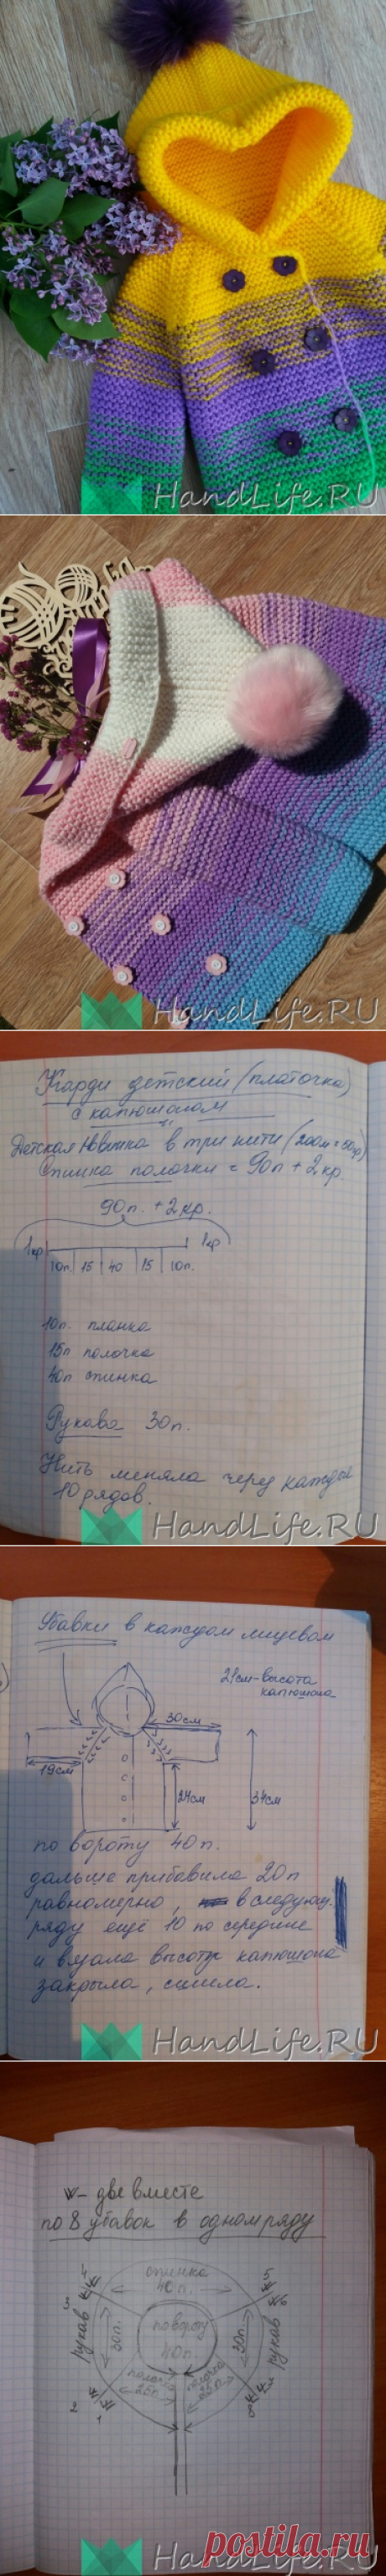 HandLife.RU
HandLife.RU
Карди детский (платочка)
с капюшоном
Детская Новинка в три нити (200м = 50гр)
Спинка полочки = 90п + 2кр.
90п. + 2кр.
1кр 1кр
10п. 15 40 15 10п.
10п. планка
15п полочка
40п спинка
Рукава 30п.
Нить меняла через каждый
10 рядов.
HandLife.RU
Убавки в каждом лицевом
21см-высота
капюшона
30см
19см
24см
34см
по вороту 40п.
дальше прибавила 20п
равномерно, в следующ.
ряду ещё 10 по середине
и вязала высоту капюшона
закрыла, сшила.
HandLife.RU
две вместе
по 8 убавок в одном ряду
спинка
40п.
4
3
5
6
рукав
30п.
по вороту
40п.
30п.
рукав
полочка
25п
полочка
25п
2
1
HandLife.RU
postila.ru